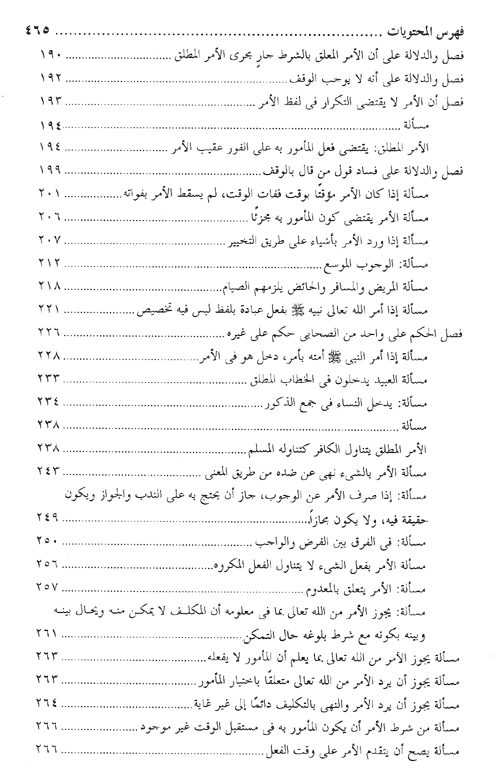 فهرس المحتويات ........ ٤٦٥
فصل والدلالة على أن الأمر المعلق بالشرط جارٍ بجرى الأمر المطلق ........ ١٩٠
فصل والدلالة على أنه لا يوجب الوقف ........ ١٩٢
فصل أن الأمر لا يقتضى التكرار فى لفظ الأمر ........ ١٩٣
مسألة ........ ١٩٤
الأمر المطلق: يقتضى فعل المأمور به على الفور عقيب الأمر ........ ١٩٤
فصل والدلالة على فساد قول من قال بالوقف ........ ١٩٩
مسألة إذا كان الأمر مؤقتًا بوقت ففات الوقت، لم يسقط الأمر بفواته ........ ٢٠١
مسألة الأمر يقتضى كون المأمور به مجزئًا ........ ٢٠٦
مسألة إذا ورد الأمر بأشياء على طريق التخيير ........ ٢٠٧
مسألة: الوجوب الموسع ........ ٢١٢
مسألة المريض والمسافر والحائض يلزمهم الصيام ........ ٢١٨
مسألة إذا أمر الله تعالى نبيه ﷺ بفعل عبادة بلفظ ليس فيه تخصيص ........ ٢٢١
فصل الحكم على واحد من الصحابى حكم على غيره ........ ٢٢٦
مسألة إذا أمر النبى ﷺ أمته بأمر، دخل هو فى الأمر ........ ٢٢٨
مسألة العبيد يدخلون فى الخطاب المطلق ........ ٢٣٣
مسألة: يدخل النساء فى جمع الذكور ........ ٢٣٤
مسألة ........ ٢٣٨
الأمر المطلق يتناول الكافر كتناوله المسلم ........ ٢٣٨
مسألة الأمر بالشىء نهى عن ضده من طريق المعنى ........ ٢٤٣
مسألة: إذا صرف الأمر عن الوجوب، جاز أن يحتج به على الندب والجواز ويكون
حقيقة فيه، ولا يكون مجازاً ........ ٢٤٩
مسألة: فى الفرق بين الفرض والواجب ........ ٢٥٠
مسألة الأمر بفعل الشىء لا يتناول الفعل المكروه ........ ٢٥٦
مسألة: الأمر يتعلق بالمعدوم ........ ٢٥٧
مسألة: يجوز الأمر من الله تعالى بما فى معلومه أن المكلف لا يمكن منه ويحال بينه
وبينه بكونه مع شرط بلوغه حال التمكن ........ ٢٦١
مسألة يجوز الأمر من الله تعالى بما يعلم أن المأمور لا يفعله ........ ٢٦٣
مسألة يجوز أن يرد الأمر من الله تعالى متعلقًا باختيار المأمور ........ ٢٦٣
مسألة يجوز أن يرد الأمر والنهى بالتكليف دائمًا إلى غير غاية ........ ٢٦٤
مسألة من شرط الأمر أن يكون المأمور به فى مستقبل الوقت غير موجود ........ ٢٦٦
مسألة يصح أن يتقدم الأمر على وقت الفعل ........ ٢٦٦